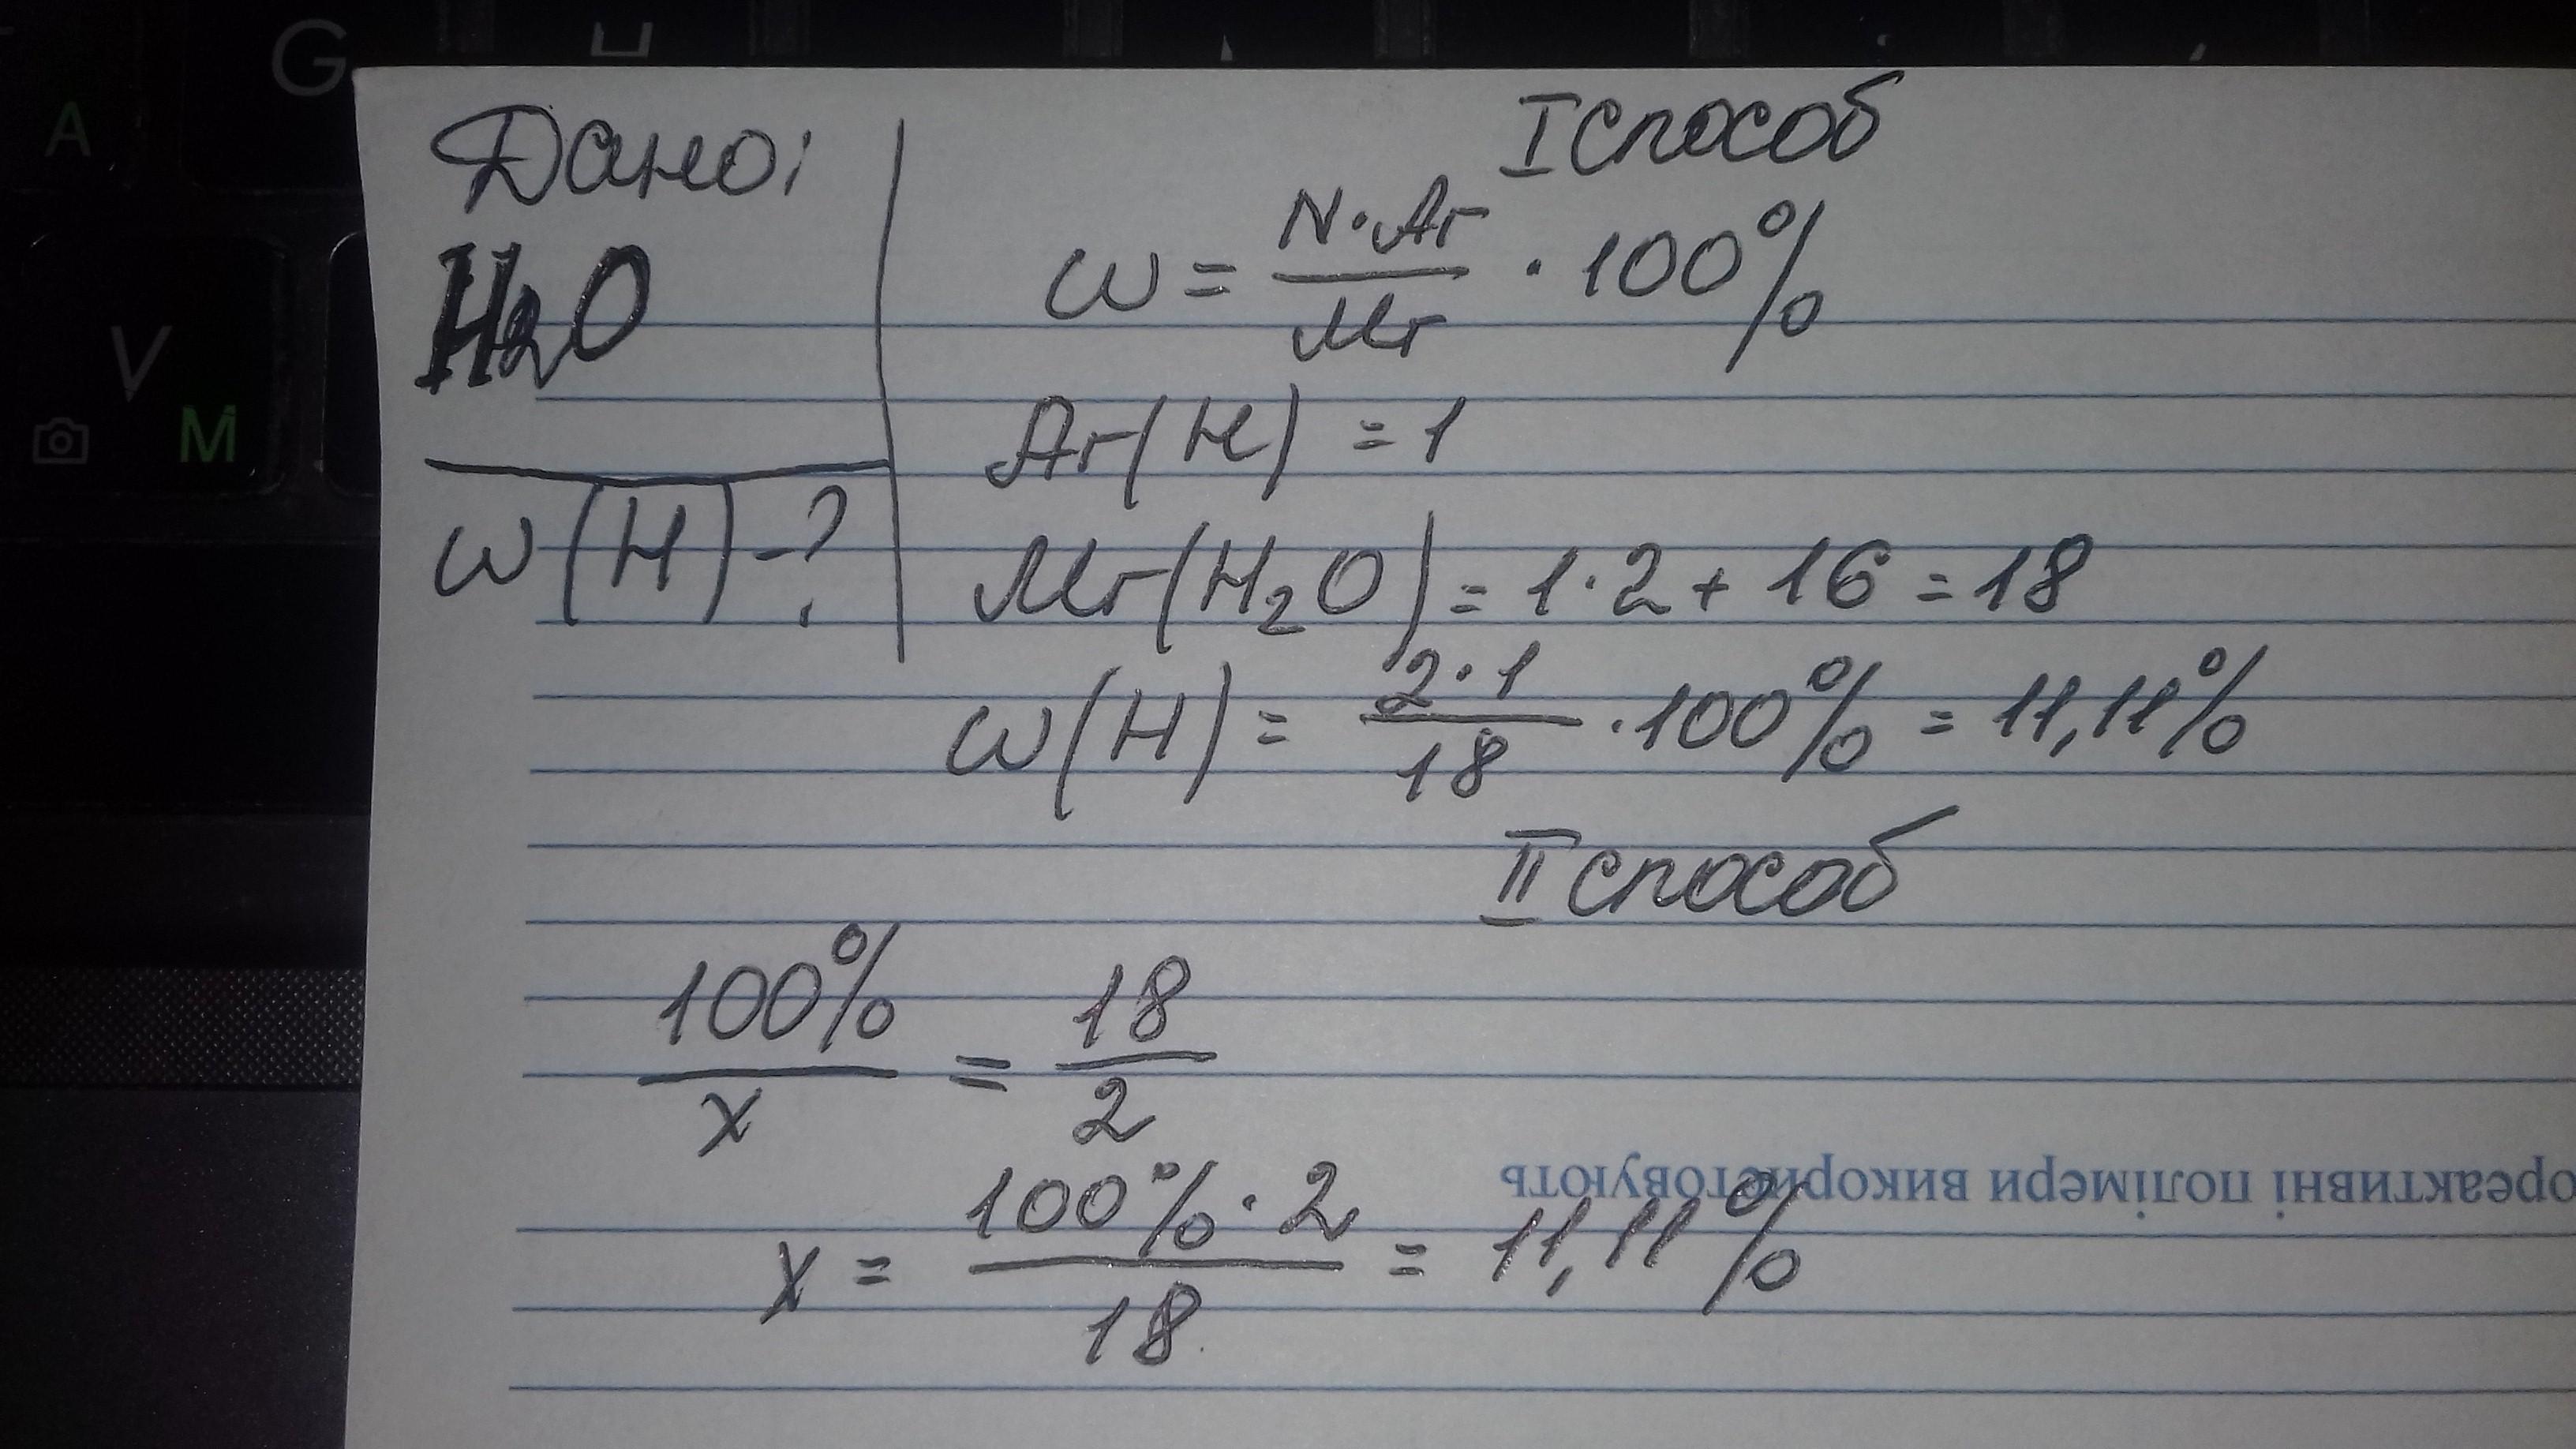 G
A
V
M
Дано:
H₂O
ω(H)-?
I спосόб
ω = N·Ar / Mr · 100%
Ar(H) = 1
Mr(H₂O) = 1·2 + 16 = 18
ω(H) = 2·1 / 18 · 100% = 11,11%
II спосоσб
100% / x = 18 / 2
x = 100%·2 / 18 = 11,11%
ореактивні полімери використовують